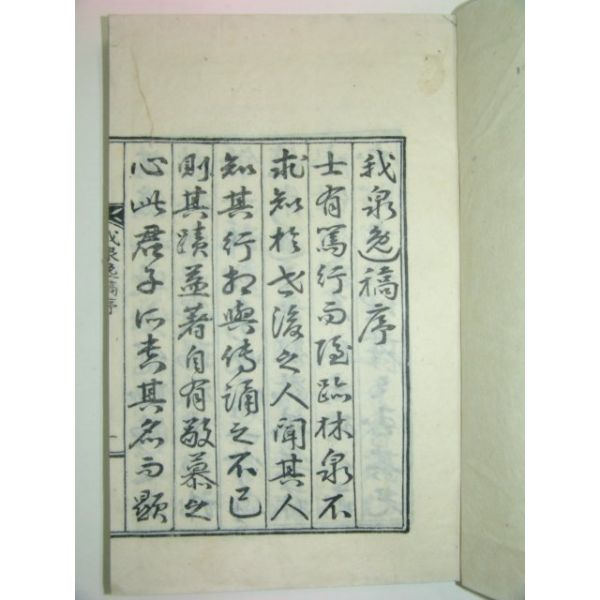 我泉逸稿序
士有篤行而隱臨林泉不
求知於世後之人聞其人
知其行相與傳誦之不已
則其蹟益著自有敬慕之
心此君子所貴其名而顯
我泉逸稿序
一